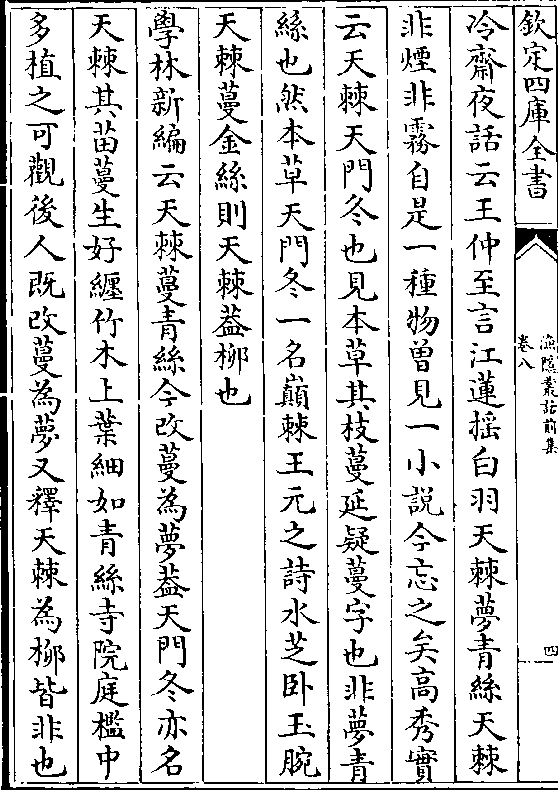 欽定四庫全書
漁隱叢話前集
卷八
四
冷齋夜話云王仲至言江蓮揺白羽天棘夢青絲天棘
非煙非霧自是一種物曽見一小説今忘之矣高秀實
云天棘天門冬也見本草其枝蔓延疑蔓字也非夢青
絲也然本草天門冬一名巔棘王元之詩水芝卧玉腕
天棘蔓金絲則天棘葢柳也
學林新編云天棘蔓青絲今改蔓為夢葢天門冬亦名
天棘其苗蔓生好纏竹木上葉細如青絲寺院庭檻中
多植之可觀後人既改蔓為夢又釋天棘為柳皆非也